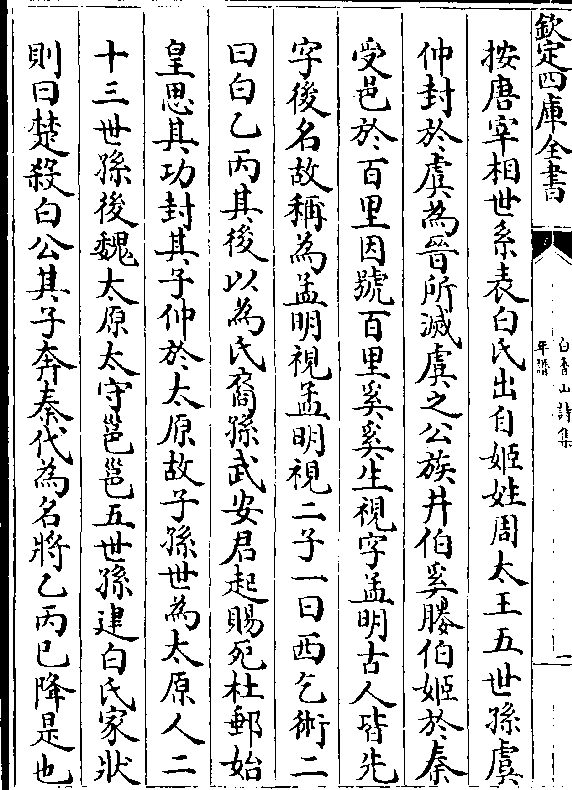 欽定四庫全書
白香山詩集
年譜
一
按唐宰相世系表白氏出自姬姓周太王五世孫虞
仲封於虞為晉所滅虞之公族井伯奚媵伯姬於秦
受邑於百里因號百里奚奚生視字孟明古人皆先
字後名故稱為孟明視孟明視二子一曰西乞術二
曰白乙丙其後以為氏裔孫武安君起賜死杜郵始
皇思其功封其子仲於太原故子孫世為太原人二
十三世孫後魏太原太守邕邕五世孫建白氏家狀
則曰楚殺白公其子奔秦代為名將乙丙已降是也